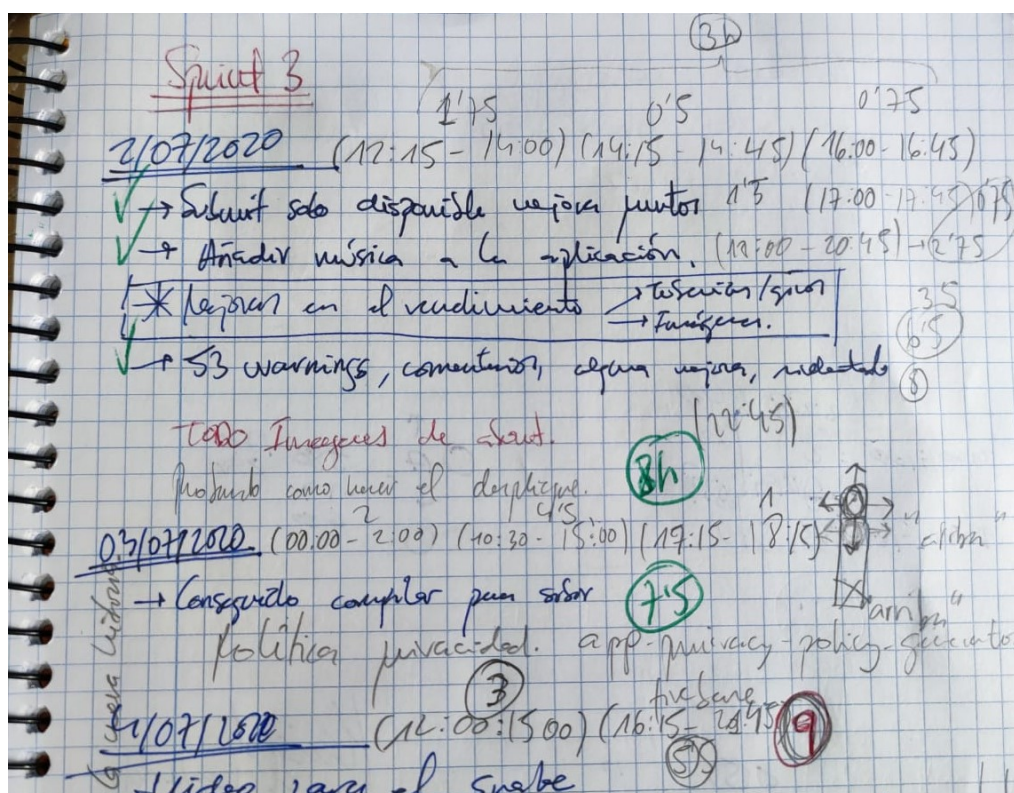 3h
Sprint 3
1'75 0'5 0'75
2/07/2020 (12:15 - 14:00) (14:15 - 14:45) (16:00 - 16:45)
→ Submit solo disponible mejora puntos 1'5 (17:00 - 17:45) 0'75
→ Añadir música a la aplicación. (18:00 - 20:45) → 2'75
* Mejoras en el rendimiento → /giros
→ Imágenes.
3'5
6'5
→ 53 warnings, comentarios, alguna mejora, 8
TODO Imágenes de about. (22:45)
Probando como hacer el despliegue. 8h
2 4'5 1
03/07/2020 (00:00 - 2:00) (10:30 - 15:00) (17:15 - 18:15)
"arriba"
→ Conseguido compilar para subir 7'5
"arriba"
Política privacidad. app-privacy-policy-generato
3 firebase
4/07/2020 (12:00 : 15:00) (16:15 - 21:45) 9
5'5
Video para el